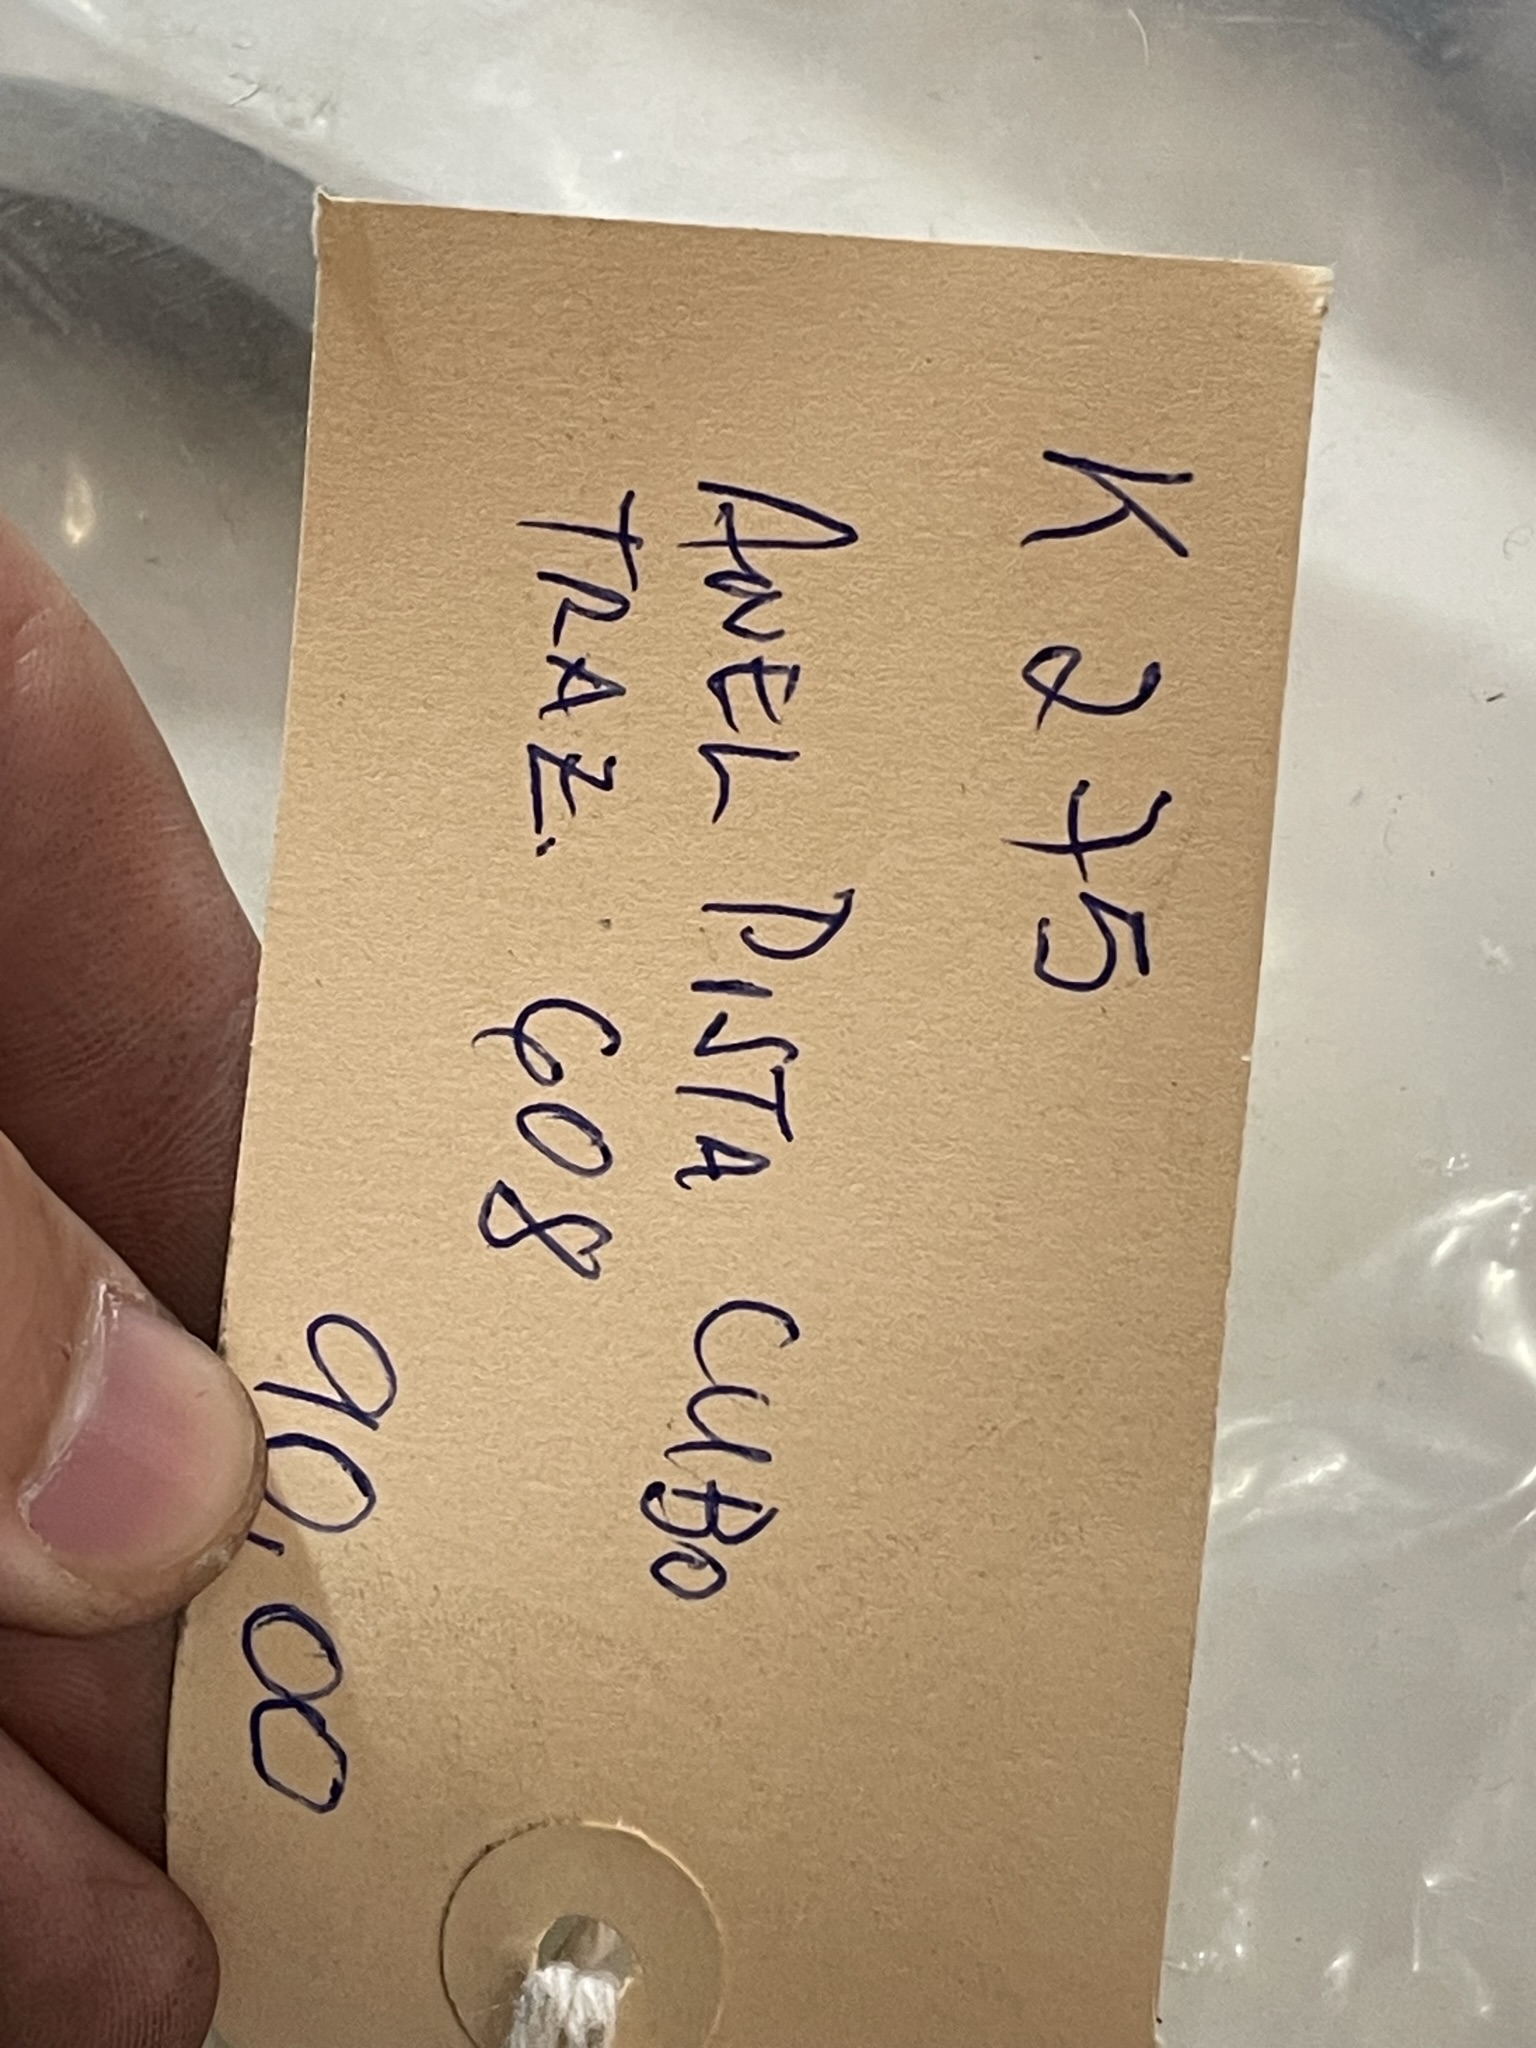 K 275
ANEL PISTA CUBO
TRAZ. 608
90,00